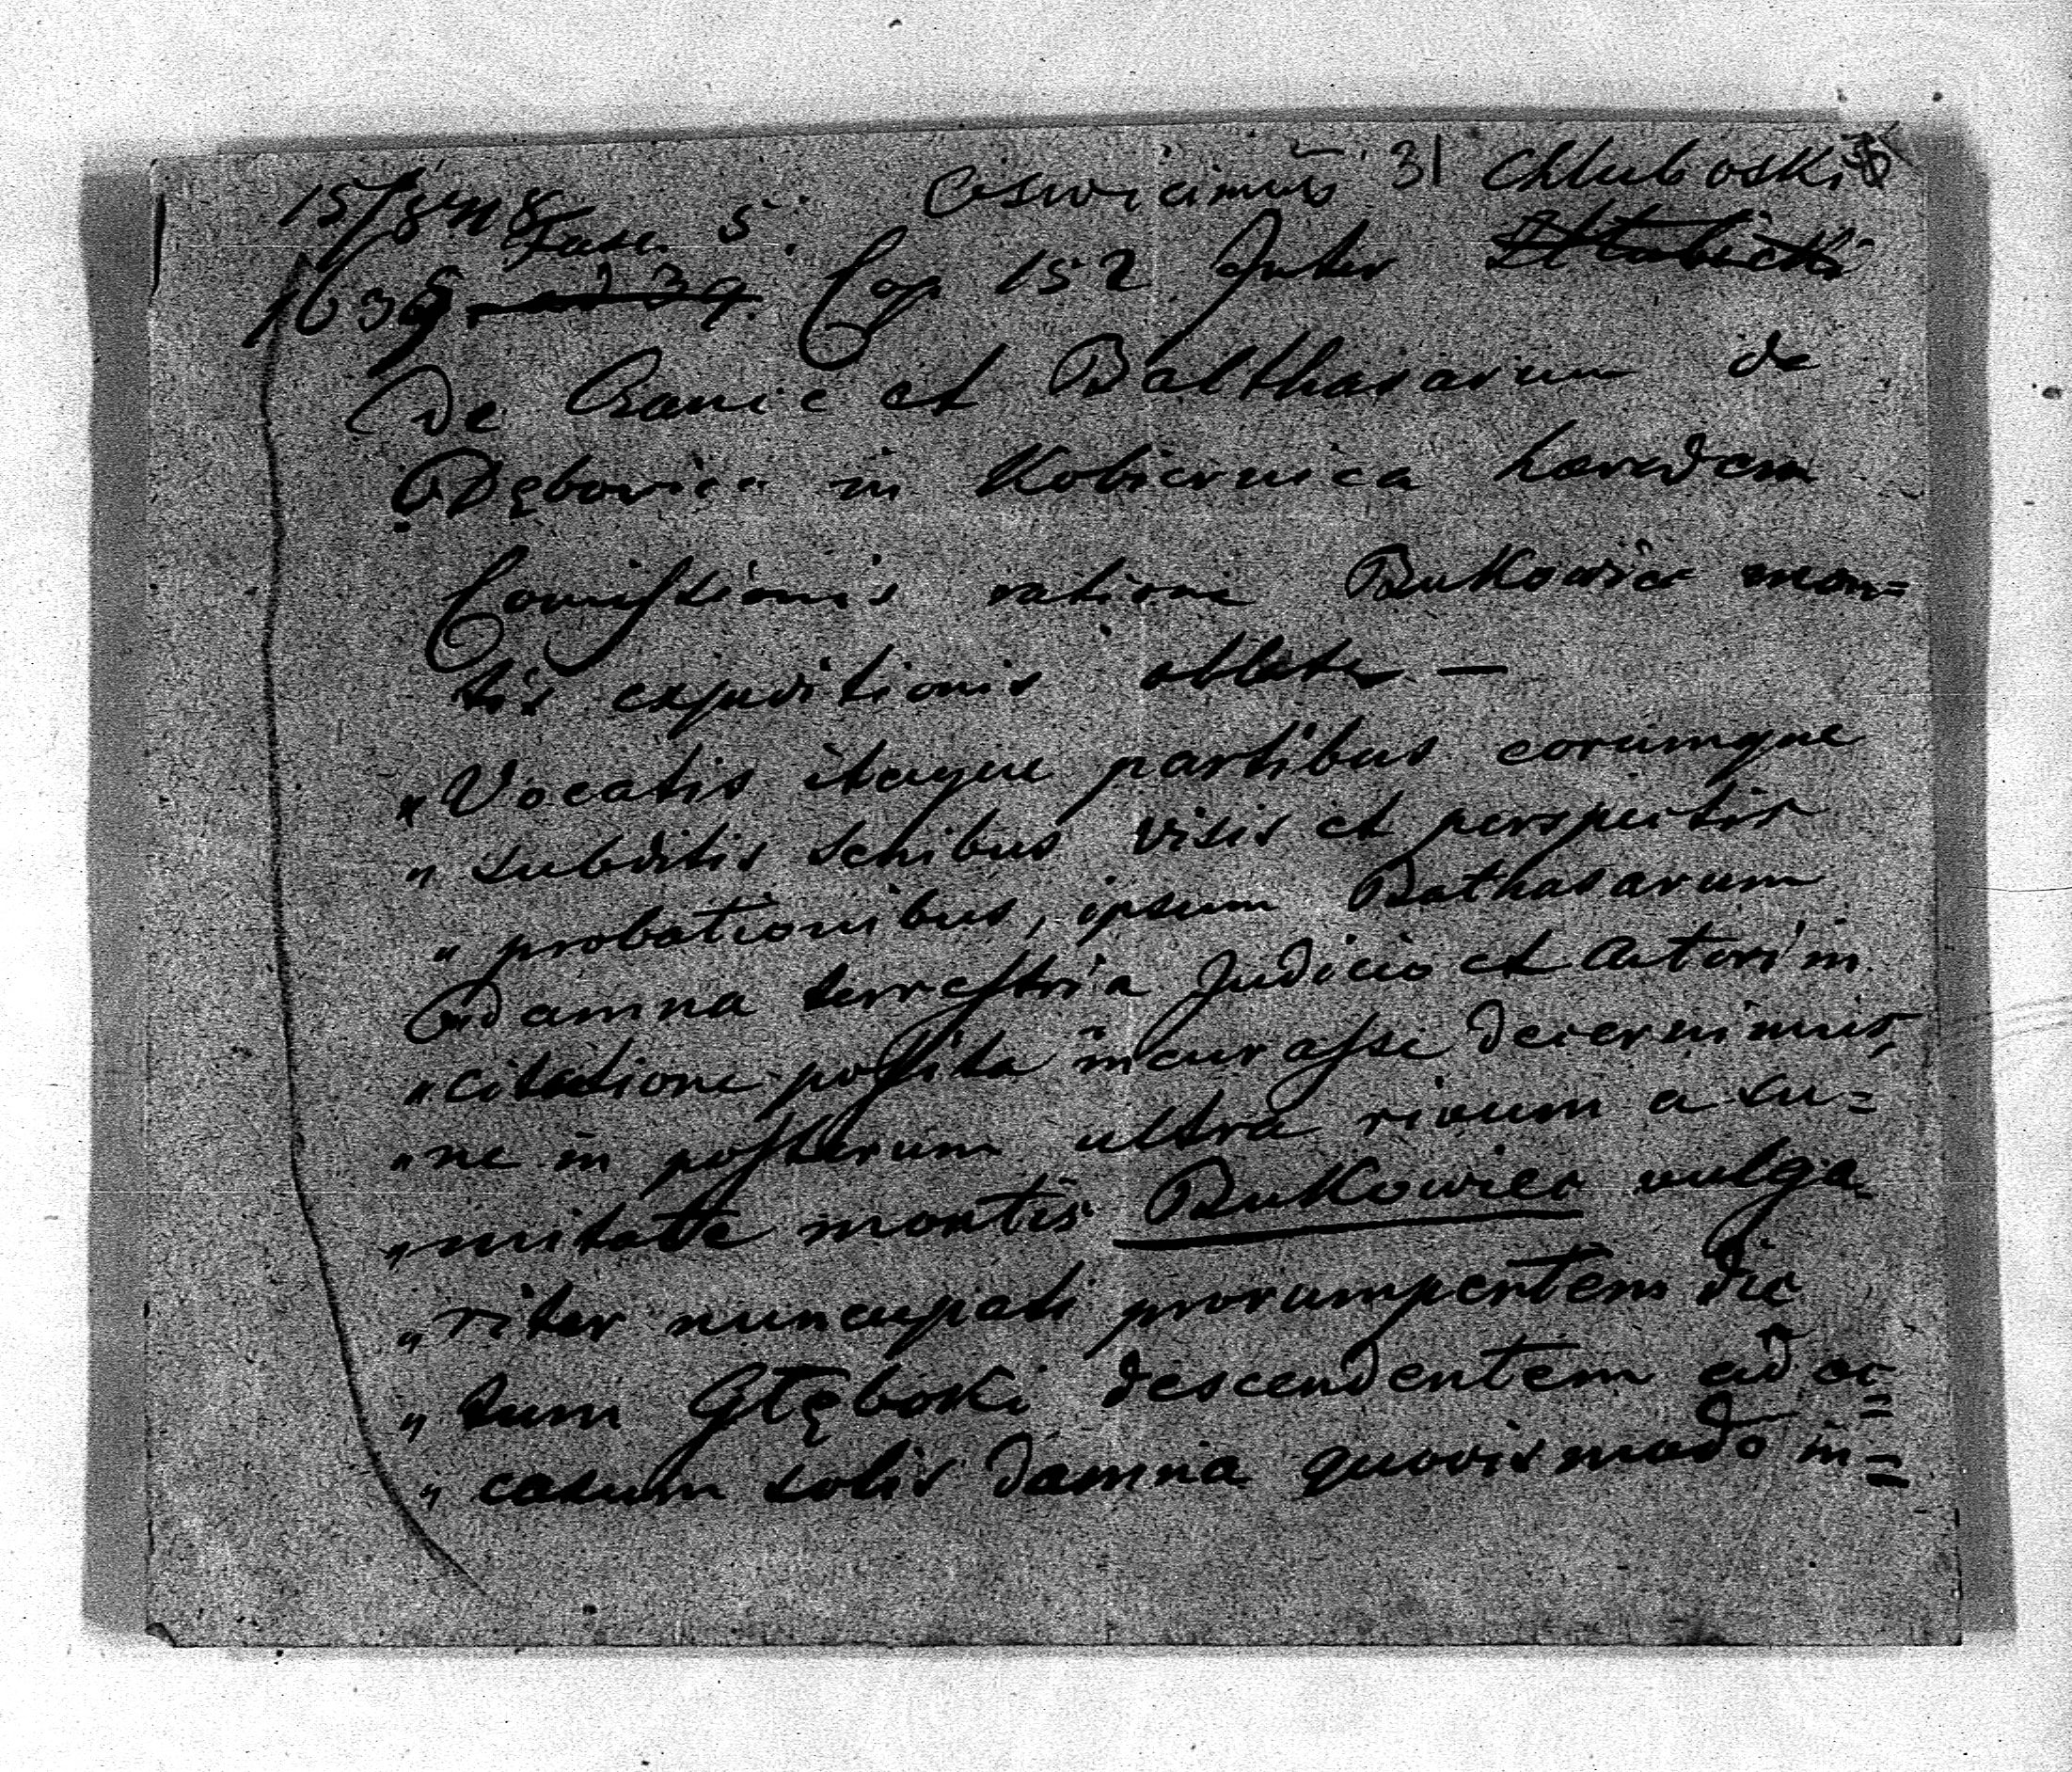 Fasc. 5. Osvicimens 31 Chluboski
1638 ad 39. Cop 152 Inter
De Czaniec et Balthasarum de
Dębowiec in Kobiernica haeredem
Comissionis ratione Bukowiec mon=
tis expeditionis oblata —
„Vocatis itaque partibus eorumque
„ subditis senibus visis et perspectis
„ probationibus, ipsum Bathasarum
„damna terrestria Judicio et Actori in
„citatione possita incurasse decernimus,
„ne in posterum ultra rivum a su=
„mitate montis Bukowiec vulga
„riter nuncupati prorumpentem dic
„tum Głęboki descendentem ad oc=
„casum solis damna quovis modo in=